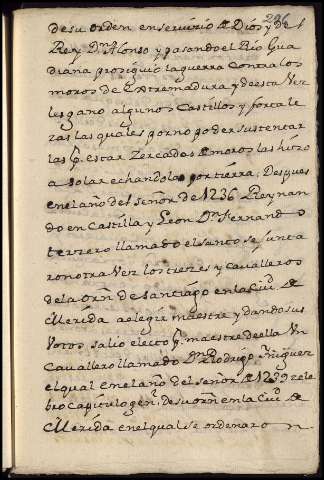 236
de su orden en servicio de Dios y del
Rey Dn. Alonso y pasando el Rio Gua
diana prosiguio la guerra Contra los
moros de Extremadura y de esta Vez
les gano algunos Castillos y fortale
zas las quales por no poder sustentar
las p. estar Zercados de moros las hizo
asolar echandolas por tierra; Despues
en el año del Señor de 1236 Reynan
do en Castilla y Leon Dn. Fernando
terzero llamado el santo se junta
ron otra Vez los trezes y cavalleros
de la Orn de Santiago en la Ciu. de
Merida a elegir maestre y dando sus
Votos salio electo p. maestre de ella Un
Cavallero llamado Dn. Rodrigo Iñiguez
el qual en el año del señor de 1239 zele
bro capitulo gen. de su orn en la Ciu. de
Merida en el qual se ordenaron